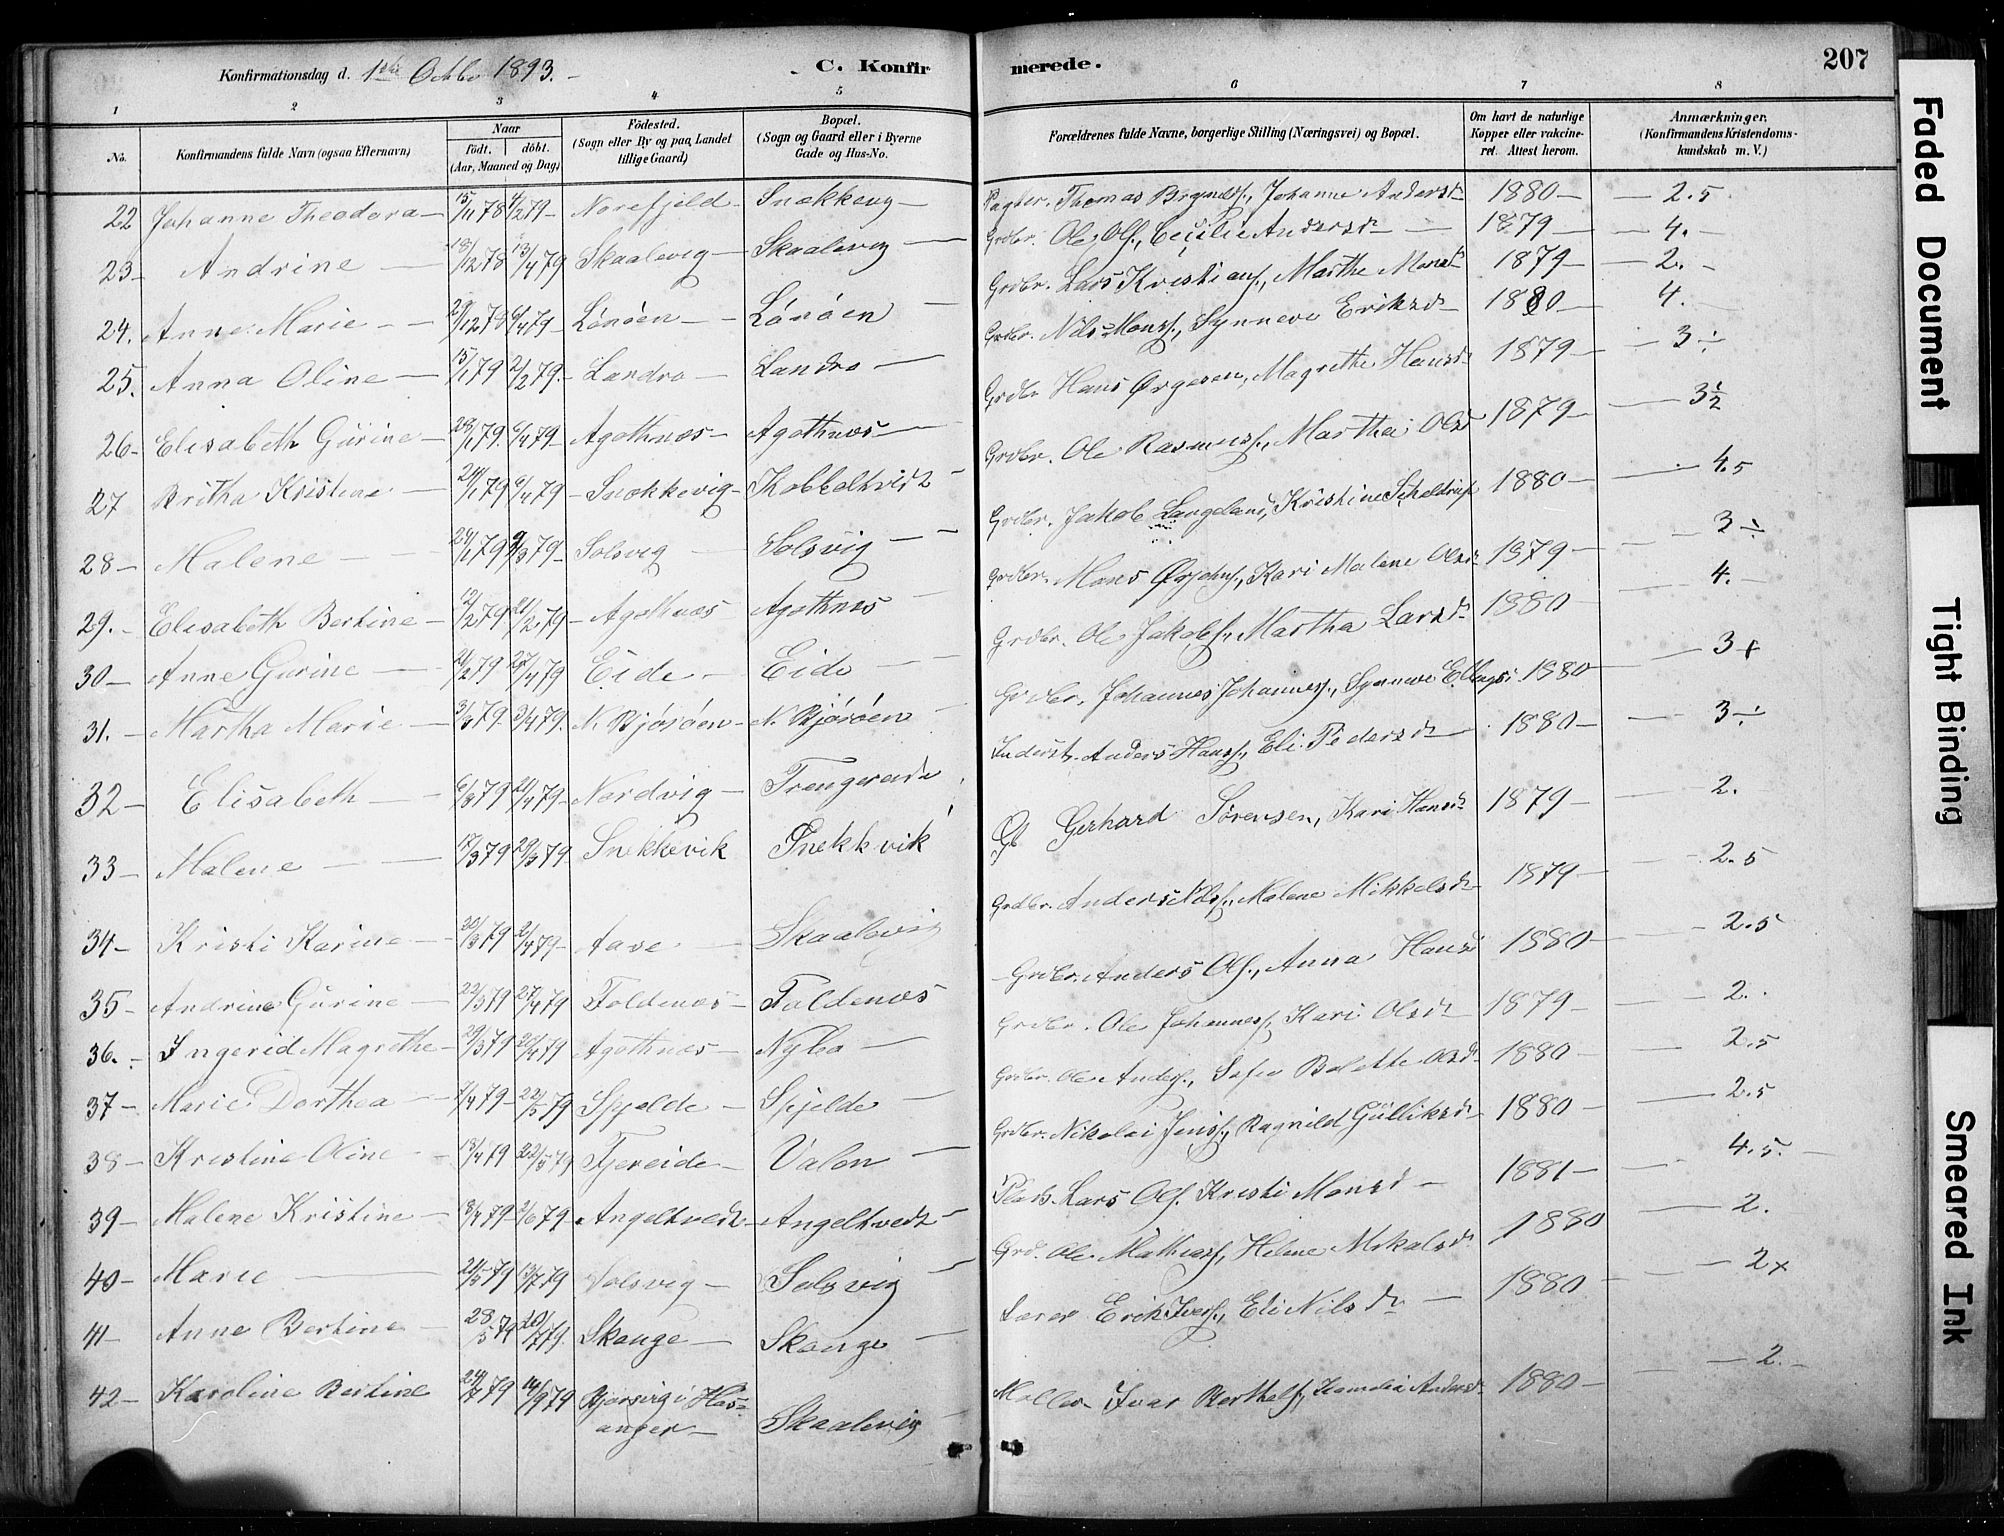 Konfirmationsdag d. 1ste Octbr 1893. C. Konfirmerede. 207
1 2 3 4 5 6 7 8
No. Konfirmandens fulde Navn (ogsaa Efternavn) Naar födt. döbt. (Aar, Maaned og Dag) Födested. (Sogn eller By og paa Landet tillige Gaard) Bopæl. (Sogn og Gaard eller i Byerne Gade og Hus-No. Forældrenes fulde Navne, borgerlige Stilling (Næringsvei) og Bopæl. Om havt de naturlige Kopper eller vakcineret. Attest herom. Anmærkninger. (Konfirmandens Kristendomskundskab m. V.)
22 Johanne Theodora 15/11 78 4/2 79 Norefjeld Snekkevg Thomas Johanne Andersd 1880 2.5
23 Andrine 18/12 78 13/4 79 Skaalevig Skaalevig Grdbr. Ole Ols., Cecilie Andersd 1879 4.
24. Anne Marie 29/12 78 6/4 79 Lönöen Lönöen Grdbr. Lars Kristians., Marthe Monsd 1879 2.
25. Anna Oline 15/1 79 2/2 79 Landro Landro Grdbr. Nils Monss., Synneve Eriksd 1880 4.
26 Elisabeth Gurine 28/1 79 6/4 79 Agothnæs Agothnæs Grdbr Hans Örgesen, Magrethe Hansd 1879 3 ÷
27 Britha Kristine 24/1 79 6/4 79 Snekkevig Kobbeltvedt Grdbr. Ole Rasmuss., Martha Olsd 1879 3½
28 Malene 24/1 79 9/3 79 Solsvig Solsvig Grdbr. Jakob Langeland, Kristine Scheldrup 1880 4.5
29. Elisabeth Bertine 12/2 79 21/2 79 Agothnæs Agothnæs Grdbr. Mons Örjans., Kari Malene Olsd 1879 3 ÷
30 Anne Gurine 21/2 79 27/4 79 Eide Eide Grdbr. Ole Jakobs., Martha Larsd 1880 4.
31. Martha Marie 3/3 79 3/4 79 N. Björöen N. Björöen Grdbr. Johannes Johanness., Synneve Ellings 1880 3+
32 Elisabeth 6/3 79 21/4 79 Nordvig Trengereide Inderst. Anders Hanss., Eli Pedersd 1880 3 ÷
33 Malene 17/3 79 29/3 79 Snekkevik Snekkvik Gerhard Sörensen, Kari Hansd 1879 2.
34 Kristi Karine 20/3 79 2/4 79 Skaalevig Grdbr. Anders Nils., Malene Mikkelsd 1879 2.5
35 Andrine Gurine 22/3 79 27/4 79 Foldenæs Foldenæs Grdbr. Anders Ols., Anna Hansd 1880 2.5
36. Ingerid Magrethe 29/3 79 20/4 79 Agothnæs Nybo Grdbr. Ole Johanness. Kari Olsd 1879 2.
37 Marie Dorthea 7/4 79 22/5 79 Spjelde Spjelde Grdbr. Ole Anders., Sofie Bolette Olsd 1880 2.5
38 Kristine Oline 18/4 79 22/5 79 Fjereide Valen Grdbr. Nikolai Jenss., Ragnild Gulliksd 1880 2.5
39 Malene Kristine 18/4 79 2/6 79 Angeltvedt Angeltvedt Plads. Lars Ols. Kristi Monsd 1881 4.5.
40 Marie 24/5 79 13/7 79 Solsvig Solsvig Grd. Ole Mathiass., Helene Mikalsd 1880 2.
41 Anne Bertine 28/5 79 20/7 79. Skonge Skonge Lærer Erik Ivers., Eli Nilsd 1880 2+
42 Karoline Bertine 24/7 79 14/9 79 Bjorsvig i Hosanger Skaalevig Möller Ivar Berthels., Andersd 1880 2.
Faded Document
Tight Binding
Smeared Ink